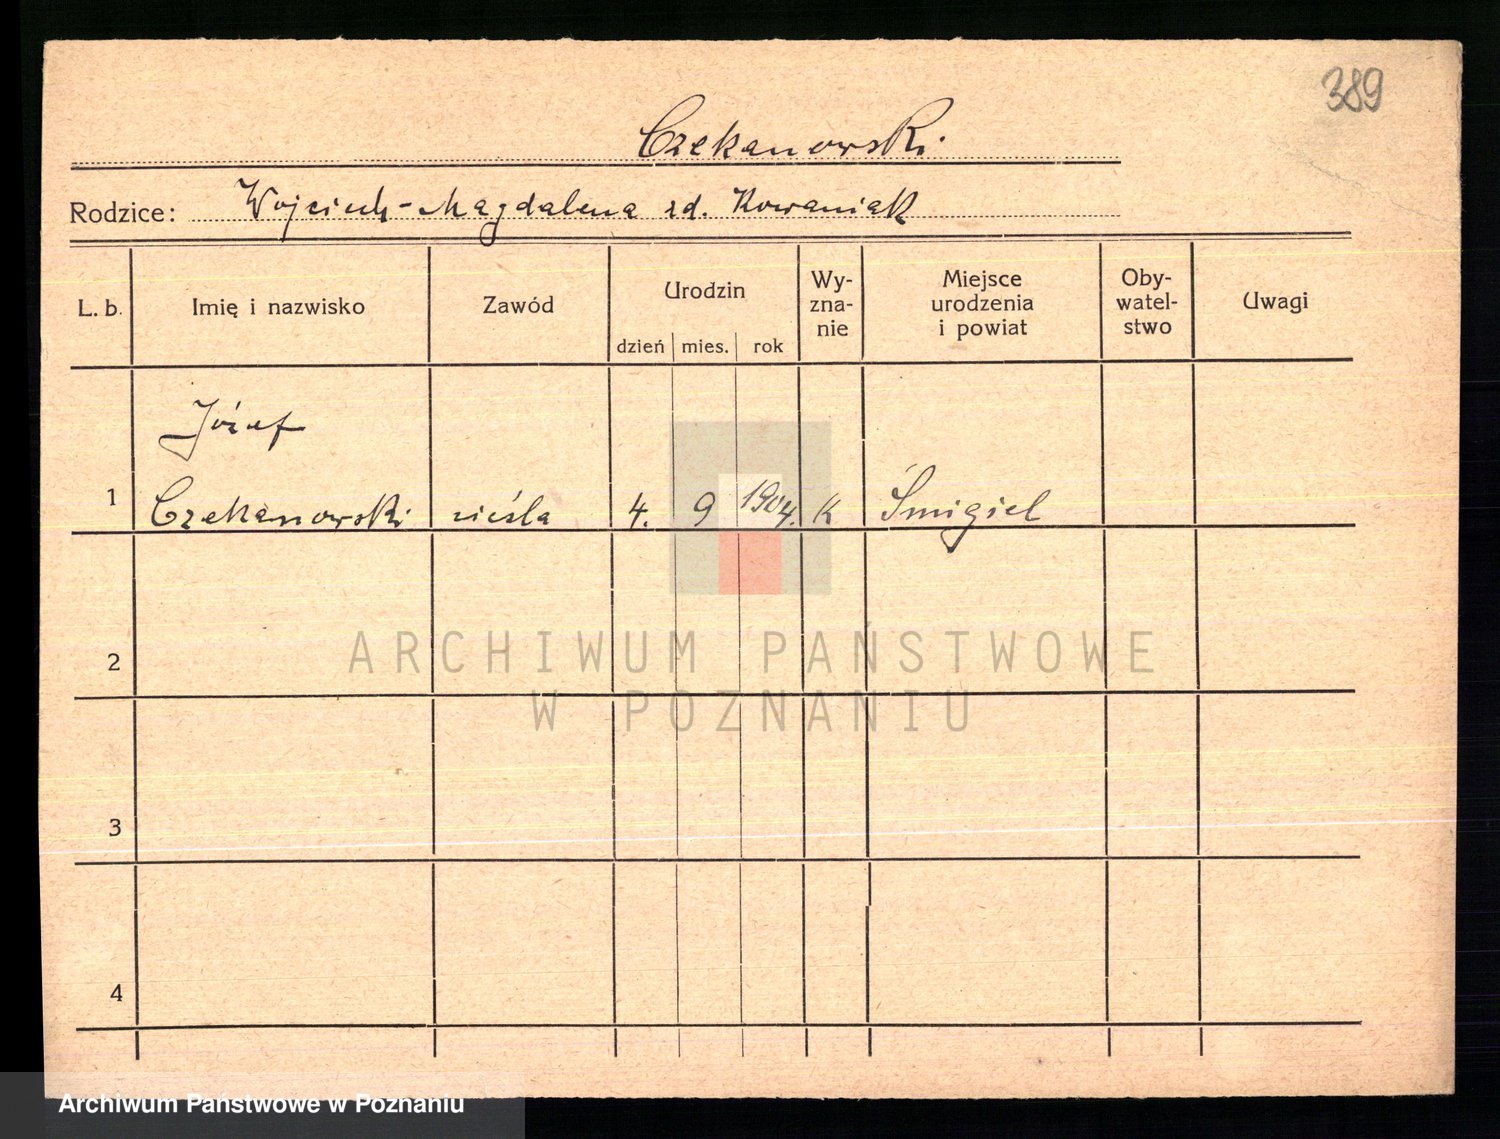 389
Czekanowski
Rodzice: Wojciech - Magdalena zd. Kowaniak
L. b. Imię i nazwisko Zawód Urodzin dzień mies. rok Wy-zna-nie Miejsce urodzenia i powiat Oby-watel-stwo Uwagi
Józef
1 Czekanowski cieśla 4. 9 1904. K Śmigiel
2
ARCHIWUM PAŃSTWOWE
W POZNANIU
3
4
Archiwum Państwowe w Poznaniu